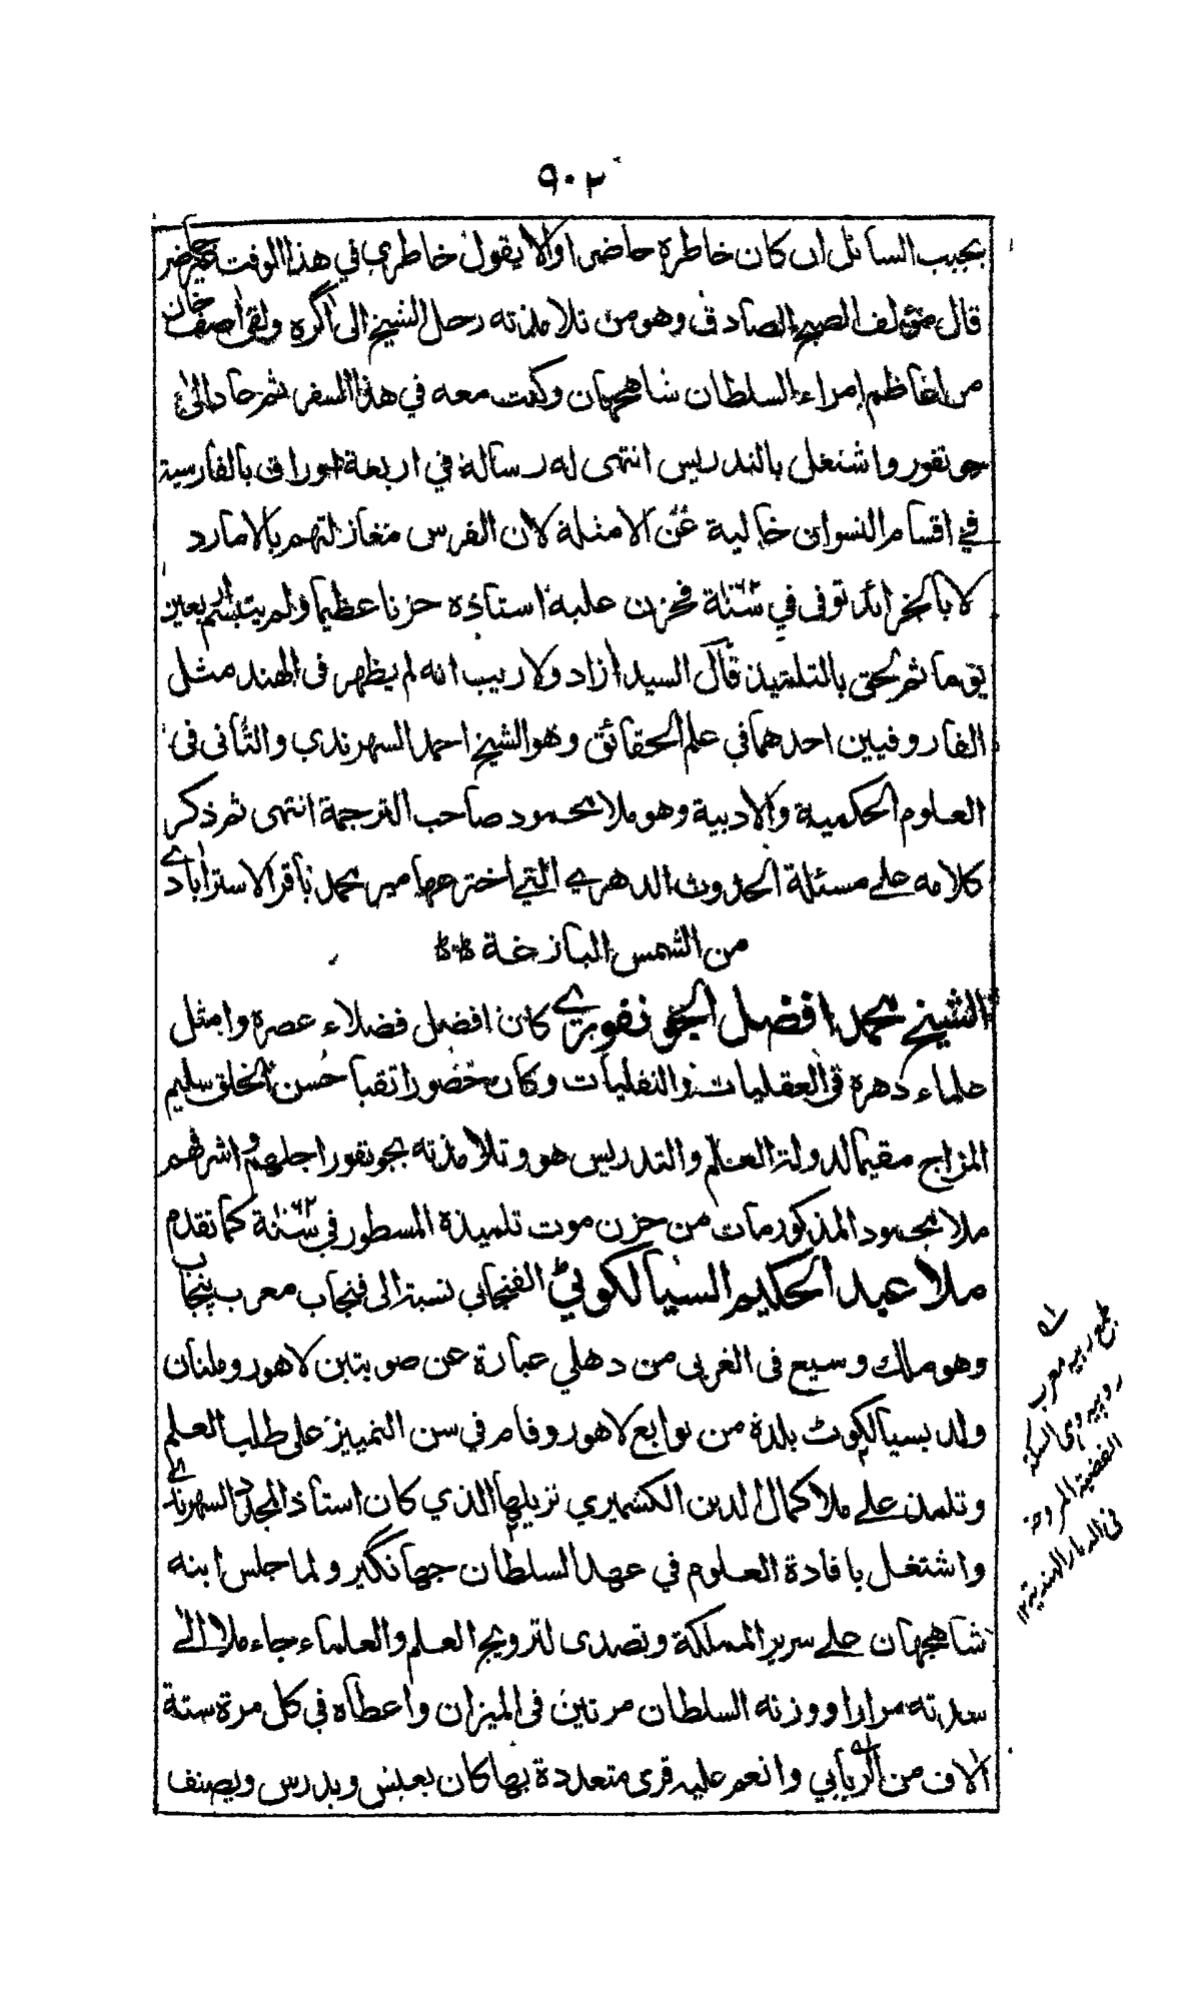 ٩٠٢
يجيب السائل ان كان خاطره حاضرا والا يقول خاطري في هذا الوقت غير حاضر
قال مؤلف الصبح الصادق وهو من تلامذته رحل الشيخ الى اگره ولقى اصف خان
من اعاظم امراء السلطان شاهجهان وكنت معه في هذا السفر ثم عاد الى
جونفور واشتغل بالتدريس انتهى له رسالة في اربعة اوراق بالفارسية
في اقسام النسوان خالية عن الامثلة لان الفرس مغازلتهم بالامارد
لا بالخرائد توفي في سنة ١٠٦٢ فحزن عليه استاذه حزنا عظيما ولم يتبسم اربعين
يوما ثم لحق بالتلميذ قال السيد ازاد ولا ريب انه لم يظهر فى الهند مثل
الفاروقيين احدهما في علم الحقائق وهو الشيخ احمد السهرندي والثانى فى
العلوم الحكمية والادبية وهو ملا محمود صاحب الترجمة انتهى ثم ذكر
كلامه على مسئلة الحدوث الدهري التي اخترعها مير محمد باقر الاسترابادي
من الشمس البازغة
الشيخ محمد افضل الجونفوري كان افضل فضلاء عصره وامثل
علماء دهره فى العقليات والنقليات وكان حضورا تقيا حسن الخلق سليم
المزاج مقيما لدولة العلم والتدريس هو وتلامذته بجونفور اجلهم واشرفهم
ملا محمود المذكور مات من حزن موت تلميذه المسطور في سنة ١٠٦٢ كما تقدم
ملا عبد الحكيم السيالكوٹي الفنجابي نسبة الى فنجاب معرب پنجاب
وهو ملك وسيع فى الغربى من دهلي عبارة عن صوبتين لاهور وملتان
ولد بسيالكوٹ بلدة من توابع لاهور وقام في سن التمييز على طلب العلم
وتلمذ على ملا كمال الدين الكشميري نزيلها الذي كان استاذ المجدد السهرندي
واشتغل بافادة العلوم في عهد السلطان جهانگير ولما جلس ابنه
شاهجهان على سرير المملكة وتصدى لترويج العلم والعلماء جاء ملا الى
سدته مرارا ووزنه السلطان مرتين فى الميزان واعطاه في كل مرة ستة
الاف من الربابي وانعم عليه قرى متعددة بها كان يعيش ويدرس ويصنف
جمع ربيه معرب
روپيه وهى السكة
الفضية المروجة
فى الديار الهندية ١٢